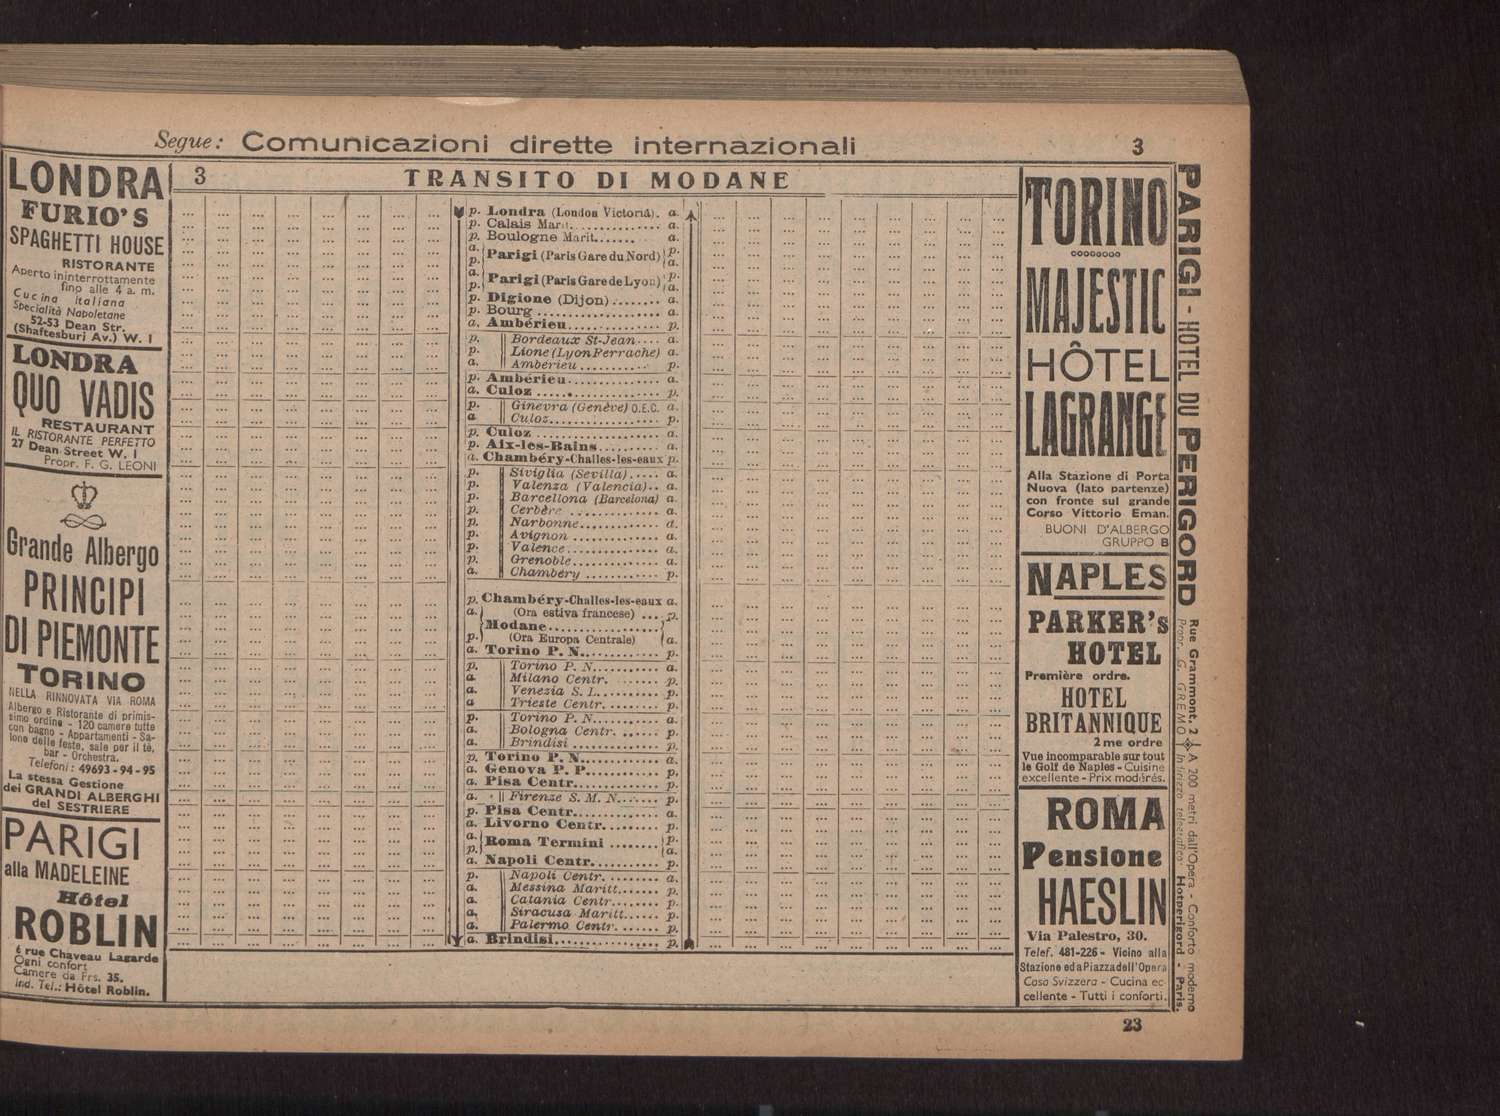 Segue: Comunicazioni dirette internazionali
3
LONDRA
FURIO'S
SPAGHETTI HOUSE
RISTORANTE
Aperto ininterrottamente
fino alle 4 a. m.
Cucina italiana
Specialità Napoletane
52-53 Dean Str.
(Shaftesburi Av.) W. 1
LONDRA
QUO VADIS
RESTAURANT
IL RISTORANTE PERFETTO
27 Dean Street W. 1
Propr. F. G. LEONI
Grande Albergo
PRINCIPI
DI PIEMONTE
TORINO
NELLA RINNOVATA VIA ROMA
Albergo e Ristorante di primis-
simo ordine - 120 camere tutte
con bagno - Appartamenti - Sa-
lone delle feste, sale per il tè,
bar - Orchestra.
Telefoni: 49693-94-95
La stessa Gestione
dei GRANDI ALBERGHI
del SESTRIERE
PARIGI
alla MADELEINE
Hôtel
ROBLIN
6 rue Chaveau Lagarde
Ogni confort
Camere da Frs. 35.
Ind. Tel.: Hôtel Roblin.
3 TRANSITO DI MODANE
p. Londra (London Victoria). a.
p. Calais Marit. a.
p. Boulogne Marit. a.
a. p. Parigi (Paris Gare du Nord) p. a.
a. p. Parigi (Paris Gare de Lyon) p. a.
p. Digione (Dijon) a.
p. Bourg a.
a. Ambérieu p.
p. Bordeaux St-Jean a.
p. Lione (Lyon Perrache) a.
a. Ambérieu p.
p. Ambérieu a.
a. Culoz p.
p. Ginevra (Genève) O.E.C. a.
a. Culoz p.
p. Culoz a.
p. Aix-les-Bains a.
a. Chambéry-Challes-les-eaux p.
p. Siviglia (Sevilla) a.
p. Valenza (Valencia) a.
p. Barcellona (Barcelona) a.
p. Cerbère a.
p. Narbonne a.
p. Avignon a.
p. Valence a.
p. Grenoble a.
a. Chambéry p.
p. Chambéry-Challes-les-eaux a.
a. (Ora estiva francese) p.
Modane
p. (Ora Europa Centrale) a.
a. Torino P. N. p.
p. Torino P. N. a.
a. Milano Centr. p.
a. Venezia S. L. p.
a Trieste Centr. p.
p. Torino P. N. a.
a. Bologna Centr. p.
a. Brindisi p.
p. Torino P. N. a.
a. Genova P. P. p.
a. Pisa Centr. p.
a. Firenze S. M. N. p.
p. Pisa Centr. a.
a. Livorno Centr. p.
a. p. Roma Termini p. a.
a. Napoli Centr. p.
p. Napoli Centr. a.
a. Messina Maritt. p.
a. Catania Centr. p.
a. Siracusa Maritt. p.
a. Palermo Centr. p.
a. Brindisi p.
TORINO
MAJESTIC
HÔTEL
LAGRANGE
Alla Stazione di Porta
Nuova (lato partenze)
con fronte sul grande
Corso Vittorio Eman.
BUONI D'ALBERGO
GRUPPO B
NAPLES
PARKER's
HOTEL
Première ordre.
HOTEL
BRITANNIQUE
2me ordre
Vue incomparable sur tout
le Golf de Naples - Cuisine
excellente - Prix modérés.
ROMA
Pensione
HAESLIN
Via Palestro, 30.
Telef. 481-226 - Vicino alla
Stazione ed a Piazza dell'Opera
Casa Svizzera - Cucina ec-
cellente - Tutti i conforti.
PARIGI - HOTEL DU PERIGORD
Rue Grammont, 2 - A 200 metri dall'Opera - Conforto moderno
Propr. G. GREMO - Indirizzo telegrafico: Hotperigord - Paris.
23